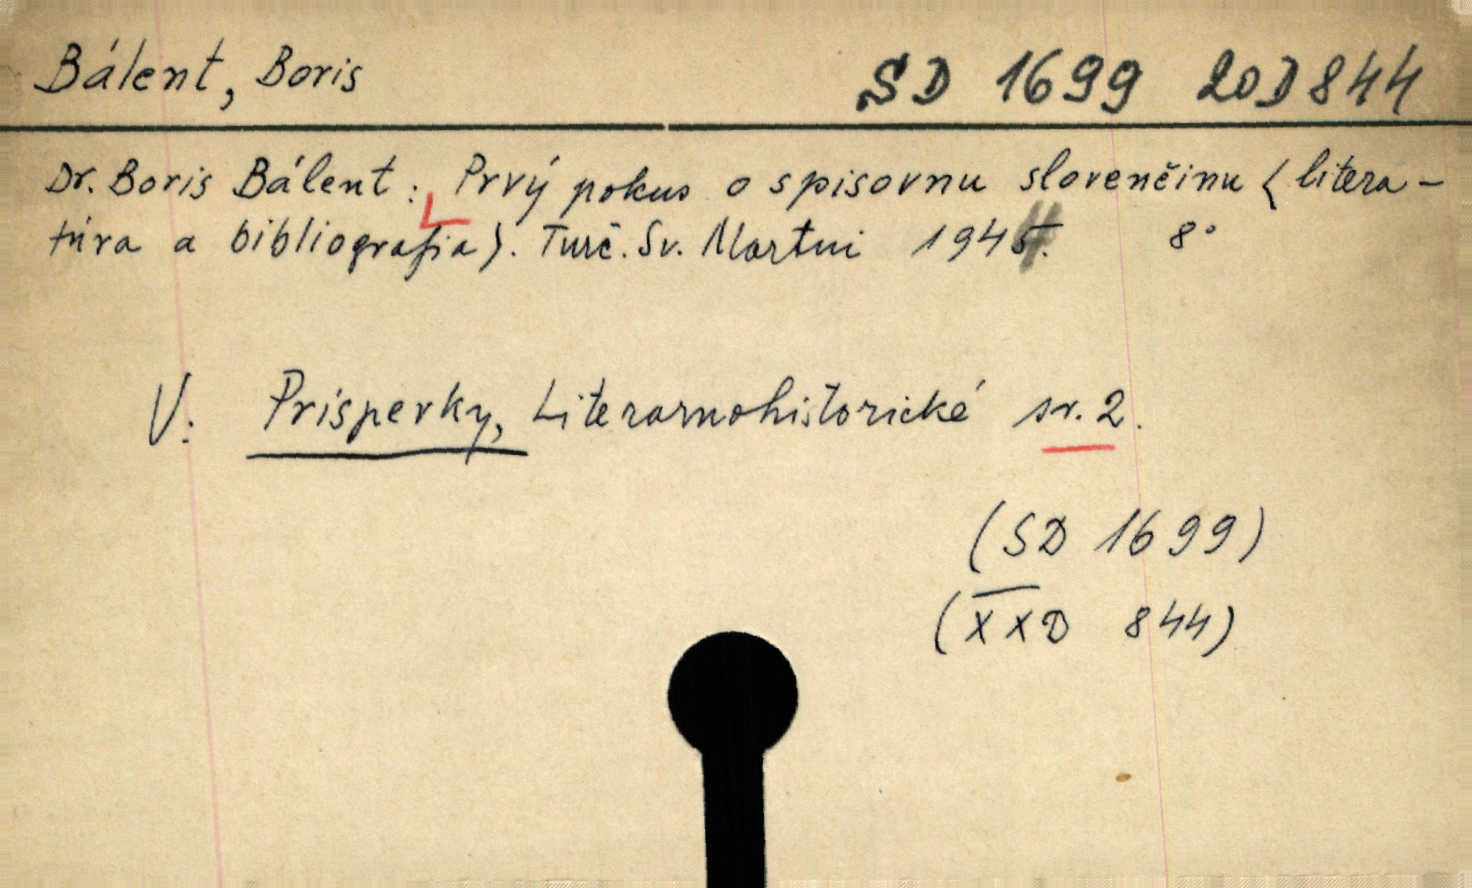 Bálent, Boris SD 1699 20D844
Dr. Boris Bálent: Prvý pokus o spisovnu slovenčinu (litera-
túra a bibliografia). Turč. Sv. Martni 8°
V: Prisperky, Literarnohistorické sv. 2.
(SD 1699)
(XXD 844)